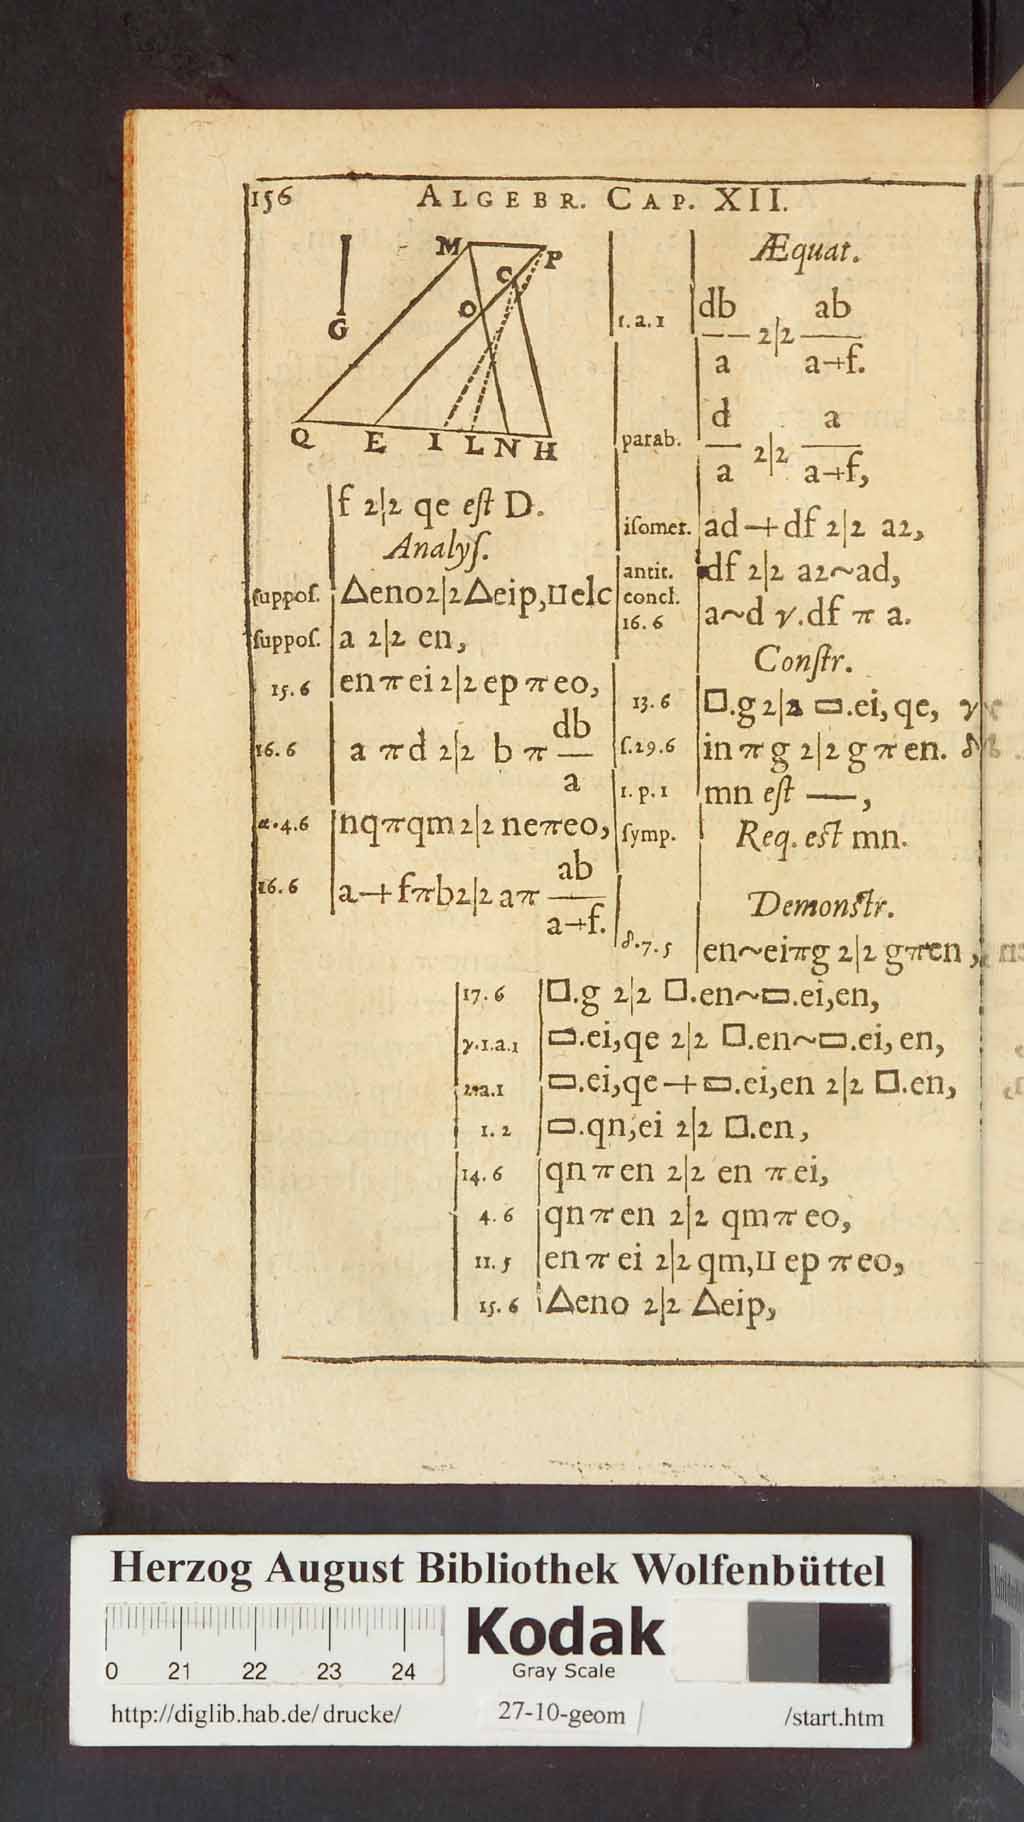 156 ALGEBR. CAP. XII.
G
M P
C
O
Q E I L N H
f 2|2 qe eſt D.
Analyſ.
ſuppoſ. △eno 2|2 △eip, ⊔ elc
ſuppoſ. a 2|2 en,
15. 6 en π ei 2|2 ep π eo,
16. 6 a π d 2|2 b π db/a
α. 4. 6 nq π qm 2|2 ne π eo,
16. 6 a + f π b 2|2 a π ab/a+f.
Æquat.
1. a. 1 db/a 2|2 ab/a+f.
parab. d/a 2|2 a/a+f,
iſomer. ad + df 2|2 a2,
antit. df 2|2 a2 ~ ad,
concl.
16. 6 a ~ d γ. df π a.
Conſtr.
13. 6 □.g 2|2 ▭.ei, qe, γ
ſ. 29. 6 in π g 2|2 g π en. δ
1. p. 1 mn eſt —,
ſymp. Req. eſt mn.
Demonſtr.
δ. 7. 5 en ~ ei π g 2|2 g π en,
17. 6 □.g 2|2 □.en ~ ▭.ei, en,
γ. 1. a. 1 ▭.ei, qe 2|2 □.en ~ ▭.ei, en,
2. a. 1 ▭.ei, qe + ▭.ei, en 2|2 □.en,
1. 2 ▭.qn, ei 2|2 □.en,
14. 6 qn π en 2|2 en π ei,
4. 6 qn π en 2|2 qm π eo,
11. 5 en π ei 2|2 qm, ⊔ ep π eo,
15. 6 △eno 2|2 △eip,
Herzog August Bibliothek Wolfenbüttel
Kodak
Gray Scale
0 21 22 23 24
http://diglib.hab.de/drucke/ 27-10-geom /start.htm